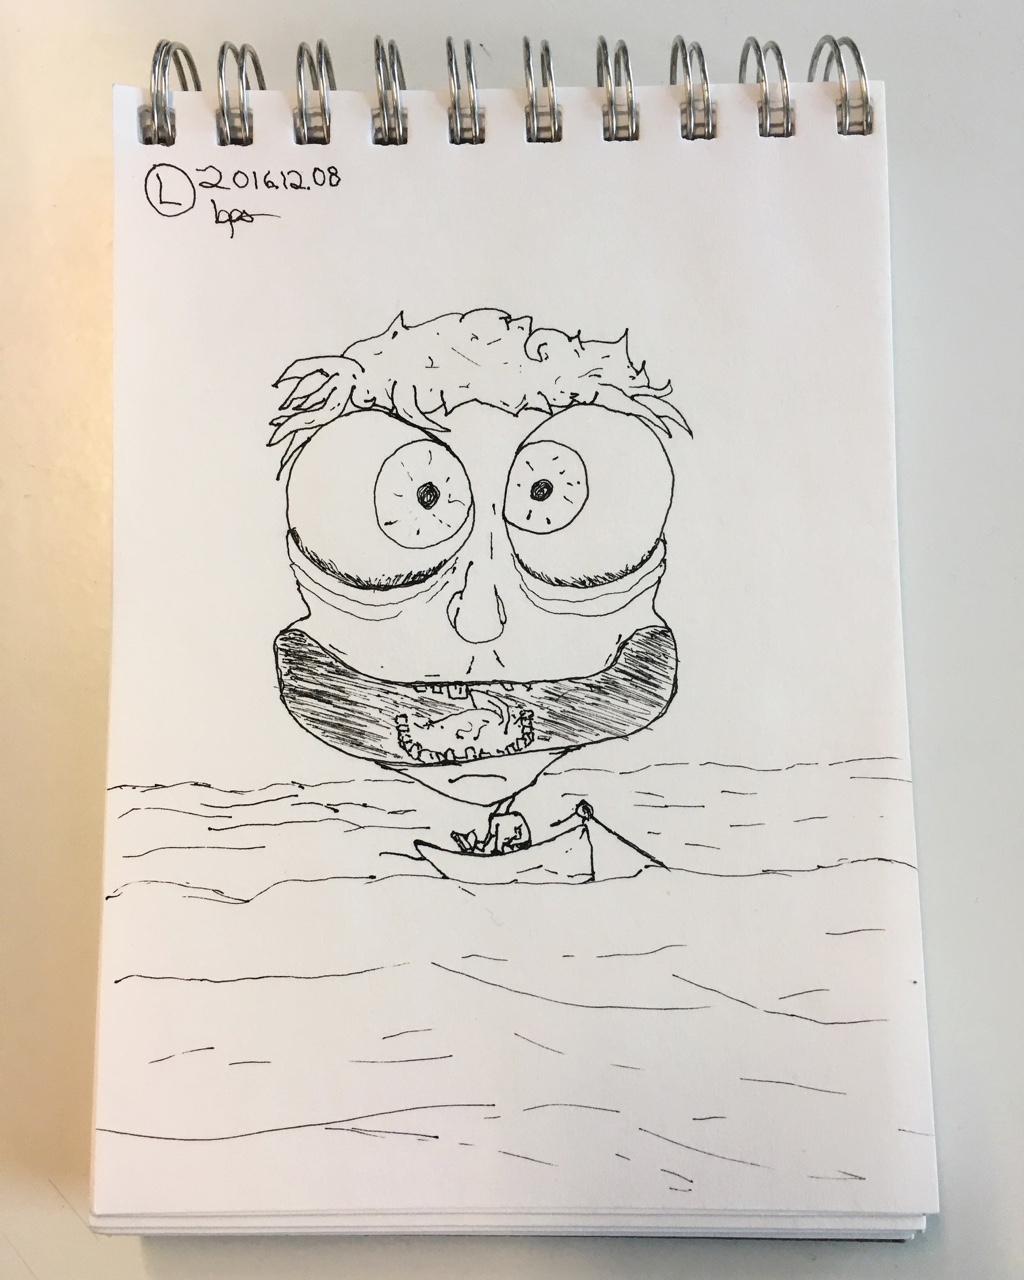 L 2016.12.08
bps